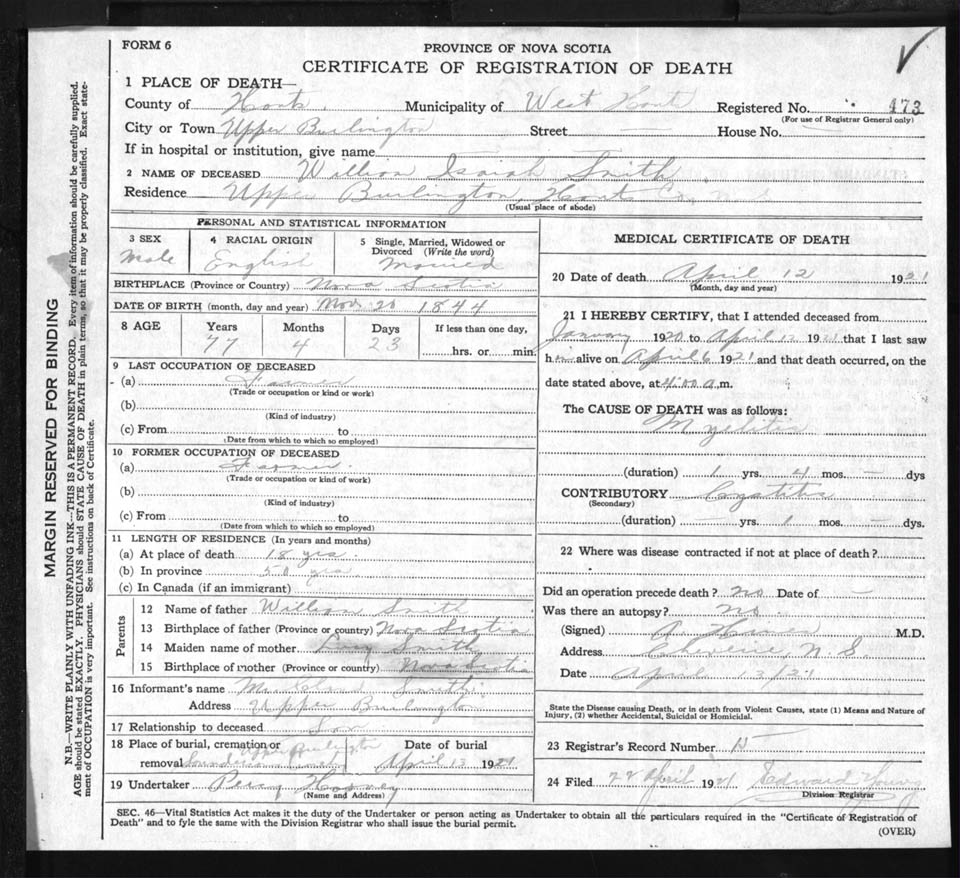 FORM 6
PROVINCE OF NOVA SCOTIA
CERTIFICATE OF REGISTRATION OF DEATH
1 PLACE OF DEATH—
County of Hants. Municipality of West Hants Registered No. 473
(For use of Registrar General only)
City or Town Upper Burlington Street House No.
If in hospital or institution, give name
2 NAME OF DECEASED William Isaiah Smith
Residence Upper Burlington, Hants Co.
(Usual place of abode)
PERSONAL AND STATISTICAL INFORMATION
3 SEX Male
4 RACIAL ORIGIN English
5 Single, Married, Widowed or Divorced (Write the word) Married
BIRTHPLACE (Province or Country) Nova Scotia
DATE OF BIRTH (month, day and year) Nov. 20 1844
8 AGE Years Months Days If less than one day,
77 4 23 hrs. or min.
9 LAST OCCUPATION OF DECEASED
(a) Farmer
(Trade or occupation or kind or work)
(b)
(Kind of industry)
(c) From to
(Date from which to which so employed)
10 FORMER OCCUPATION OF DECEASED
(a) Farmer.
(Trade or occupation or kind of work)
(b)
(Kind of industry)
(c) From to
(Date from which to which so employed)
11 LENGTH OF RESIDENCE (In years and months)
(a) At place of death 18 yrs.
(b) In province 50 yrs
(c) In Canada (if an immigrant)
Parents
12 Name of father William Smith
13 Birthplace of father (Province or country) Nova Scotia
14 Maiden name of mother Lucy Smith
15 Birthplace of mother (Province or country) Nova Scotia
16 Informant's name Smith.
Address Upper Burlington
17 Relationship to deceased Son
18 Place of burial, cremation or removal Upper Burlington
Date of burial April 13 1921
19 Undertaker Percy
(Name and Address)
MEDICAL CERTIFICATE OF DEATH
20 Date of death April 12 1921
(Month, day and year)
21 I HEREBY CERTIFY, that I attended deceased from
January 1920 to April 12 1921 that I last saw
him alive on April 6 1921 and that death occurred, on the
date stated above, at 4:00 a.m.
The CAUSE OF DEATH was as follows:
Myelitis
(duration) 1 yrs. 4 mos. — dys
CONTRIBUTORY Cystitis
(Secondary)
(duration) — yrs. 1 mos. — dys.
22 Where was disease contracted if not at place of death?
Did an operation precede death? No Date of —
Was there an autopsy? No
(Signed) A. M.D.
Address Cheverie, N.S.
Date April 13/21
State the Disease causing Death, or in death from Violent Causes, state (1) Means and Nature of
Injury, (2) whether Accidental, Suicidal or Homicidal.
23 Registrar's Record Number 15
24 Filed 22 April 1921 Edward Young
Division Registrar
SEC. 46—Vital Statistics Act makes it the duty of the Undertaker or person acting as Undertaker to obtain all the particulars required in the "Certificate of Registration of
Death" and to fyle the same with the Division Registrar who shall issue the burial permit.
(OVER)
MARGIN RESERVED FOR BINDING
N.B.—WRITE PLAINLY WITH UNFADING INK—THIS IS A PERMANENT RECORD. Every item of information should be carefully supplied.
AGE should be stated EXACTLY. PHYSICIANS should STATE CAUSE OF DEATH in plain terms, so that it may be properly classified. Exact state-
ment of OCCUPATION is very important. See instructions on back of Certificate.